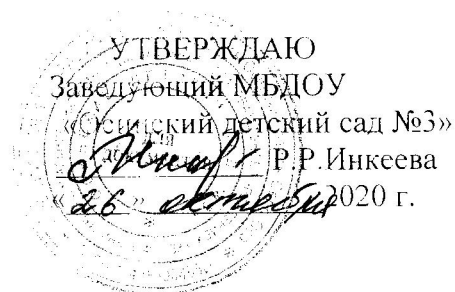 УТВЕРЖДАЮ
Заведующий МБДОУ
«Осинский детский сад №3»
Р.Р.Инкеева
«26» октября 2020 г.